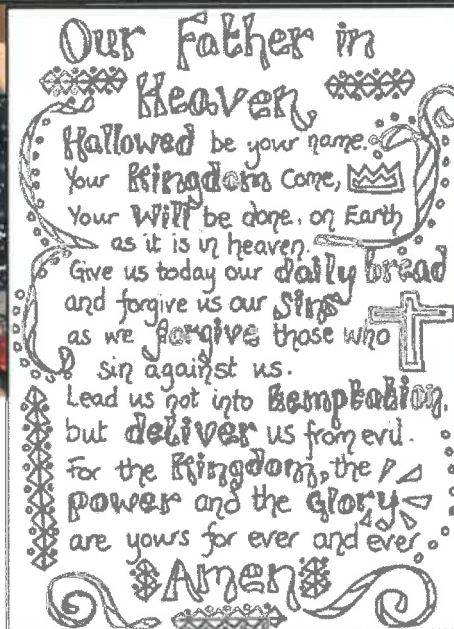 Our Father in
Heaven
Hallowed be your name.
Your Kingdom Come,
Your Will be done, on Earth
as it is in heaven.
Give us today our daily bread
and forgive us our Sins
as we forgive those who
sin against us.
Lead us not into temptation,
but deliver us from evil.
For the Kingdom, the
power and the Glory
are yours for ever and ever
Amen